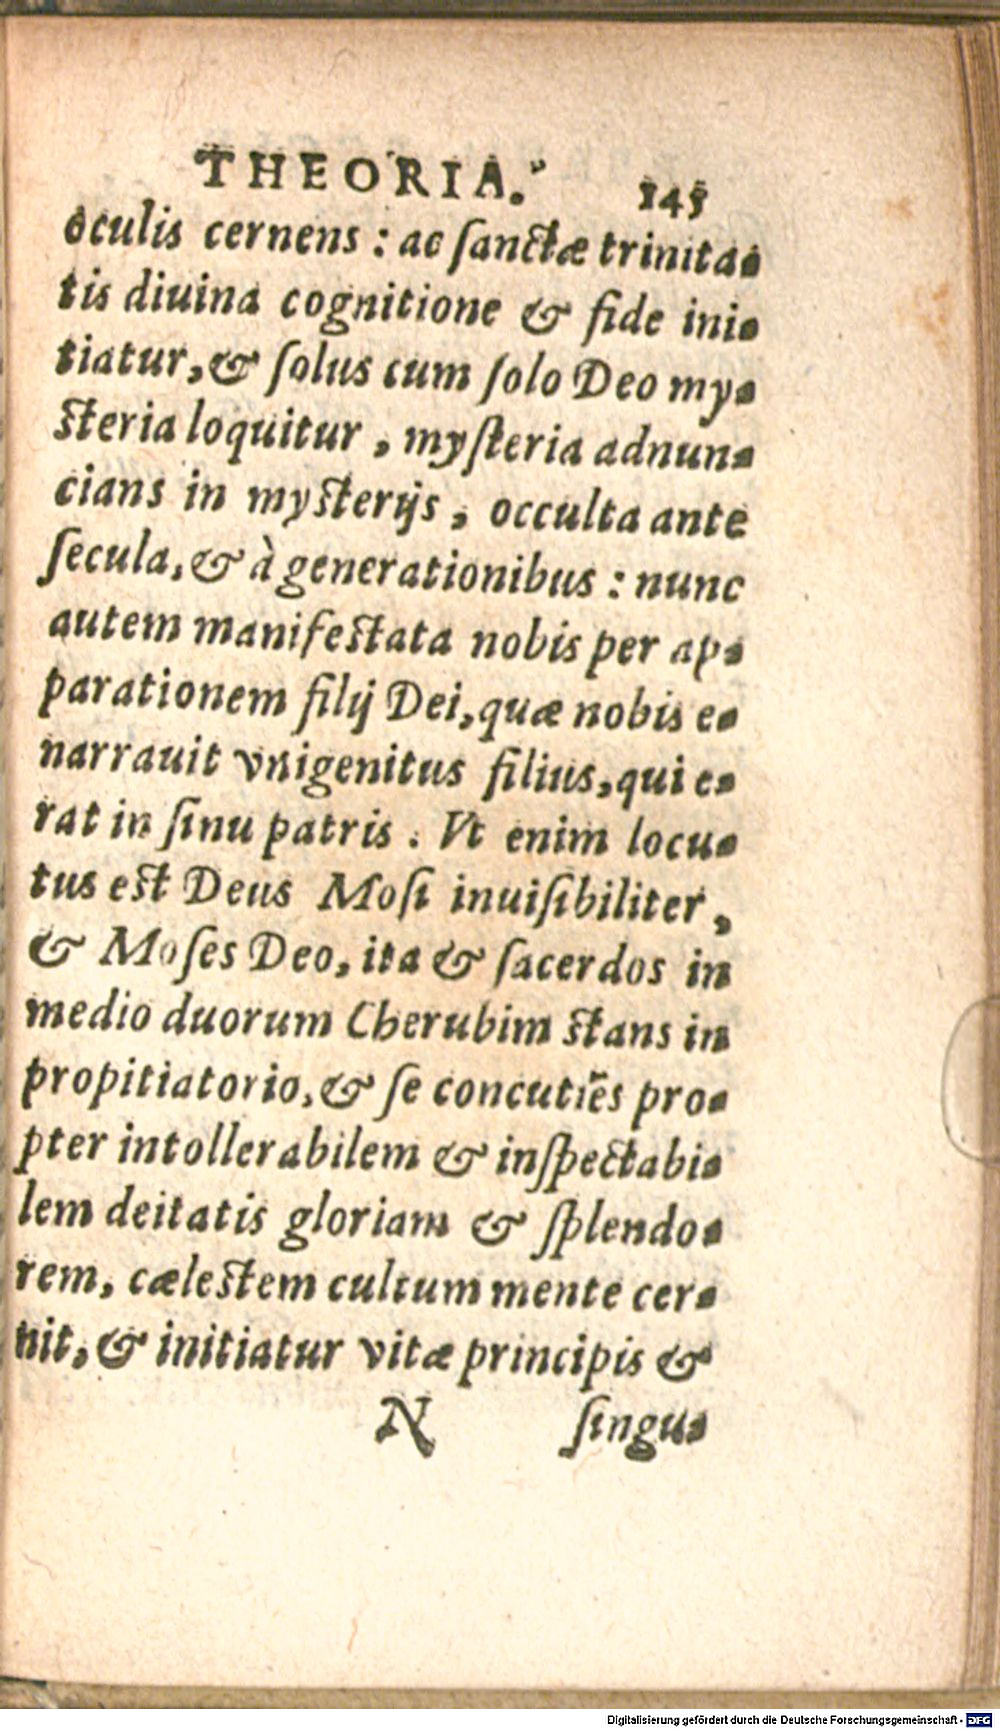 THEORIA. 145
oculis cernens : ac ſanctæ trinita-
tis diuina cognitione & fide ini-
tiatur, & ſolus cum ſolo Deo my-
ſteria loquitur, myſteria adnun-
cians in myſterijs, occulta ante
ſecula, & à generationibus : nunc
autem manifeſtata nobis per ap-
parationem filij Dei, quæ nobis e-
narrauit vnigenitus filius, qui e-
rat in ſinu patris. Vt enim locu-
tus eſt Deus Moſi inuiſibiliter,
& Moſes Deo, ita & ſacerdos in
medio duorum Cherubim ſtans in
propitiatorio, & ſe concutiēs pro-
pter intollerabilem & inſpectabi-
lem deitatis gloriam & ſplendo-
rem, cæleſtem cultum mente cer-
nit, & initiatur vitæ principis &
N ſingu-
Digitalisierung gefördert durch die Deutsche Forschungsgemeinschaft - DFG